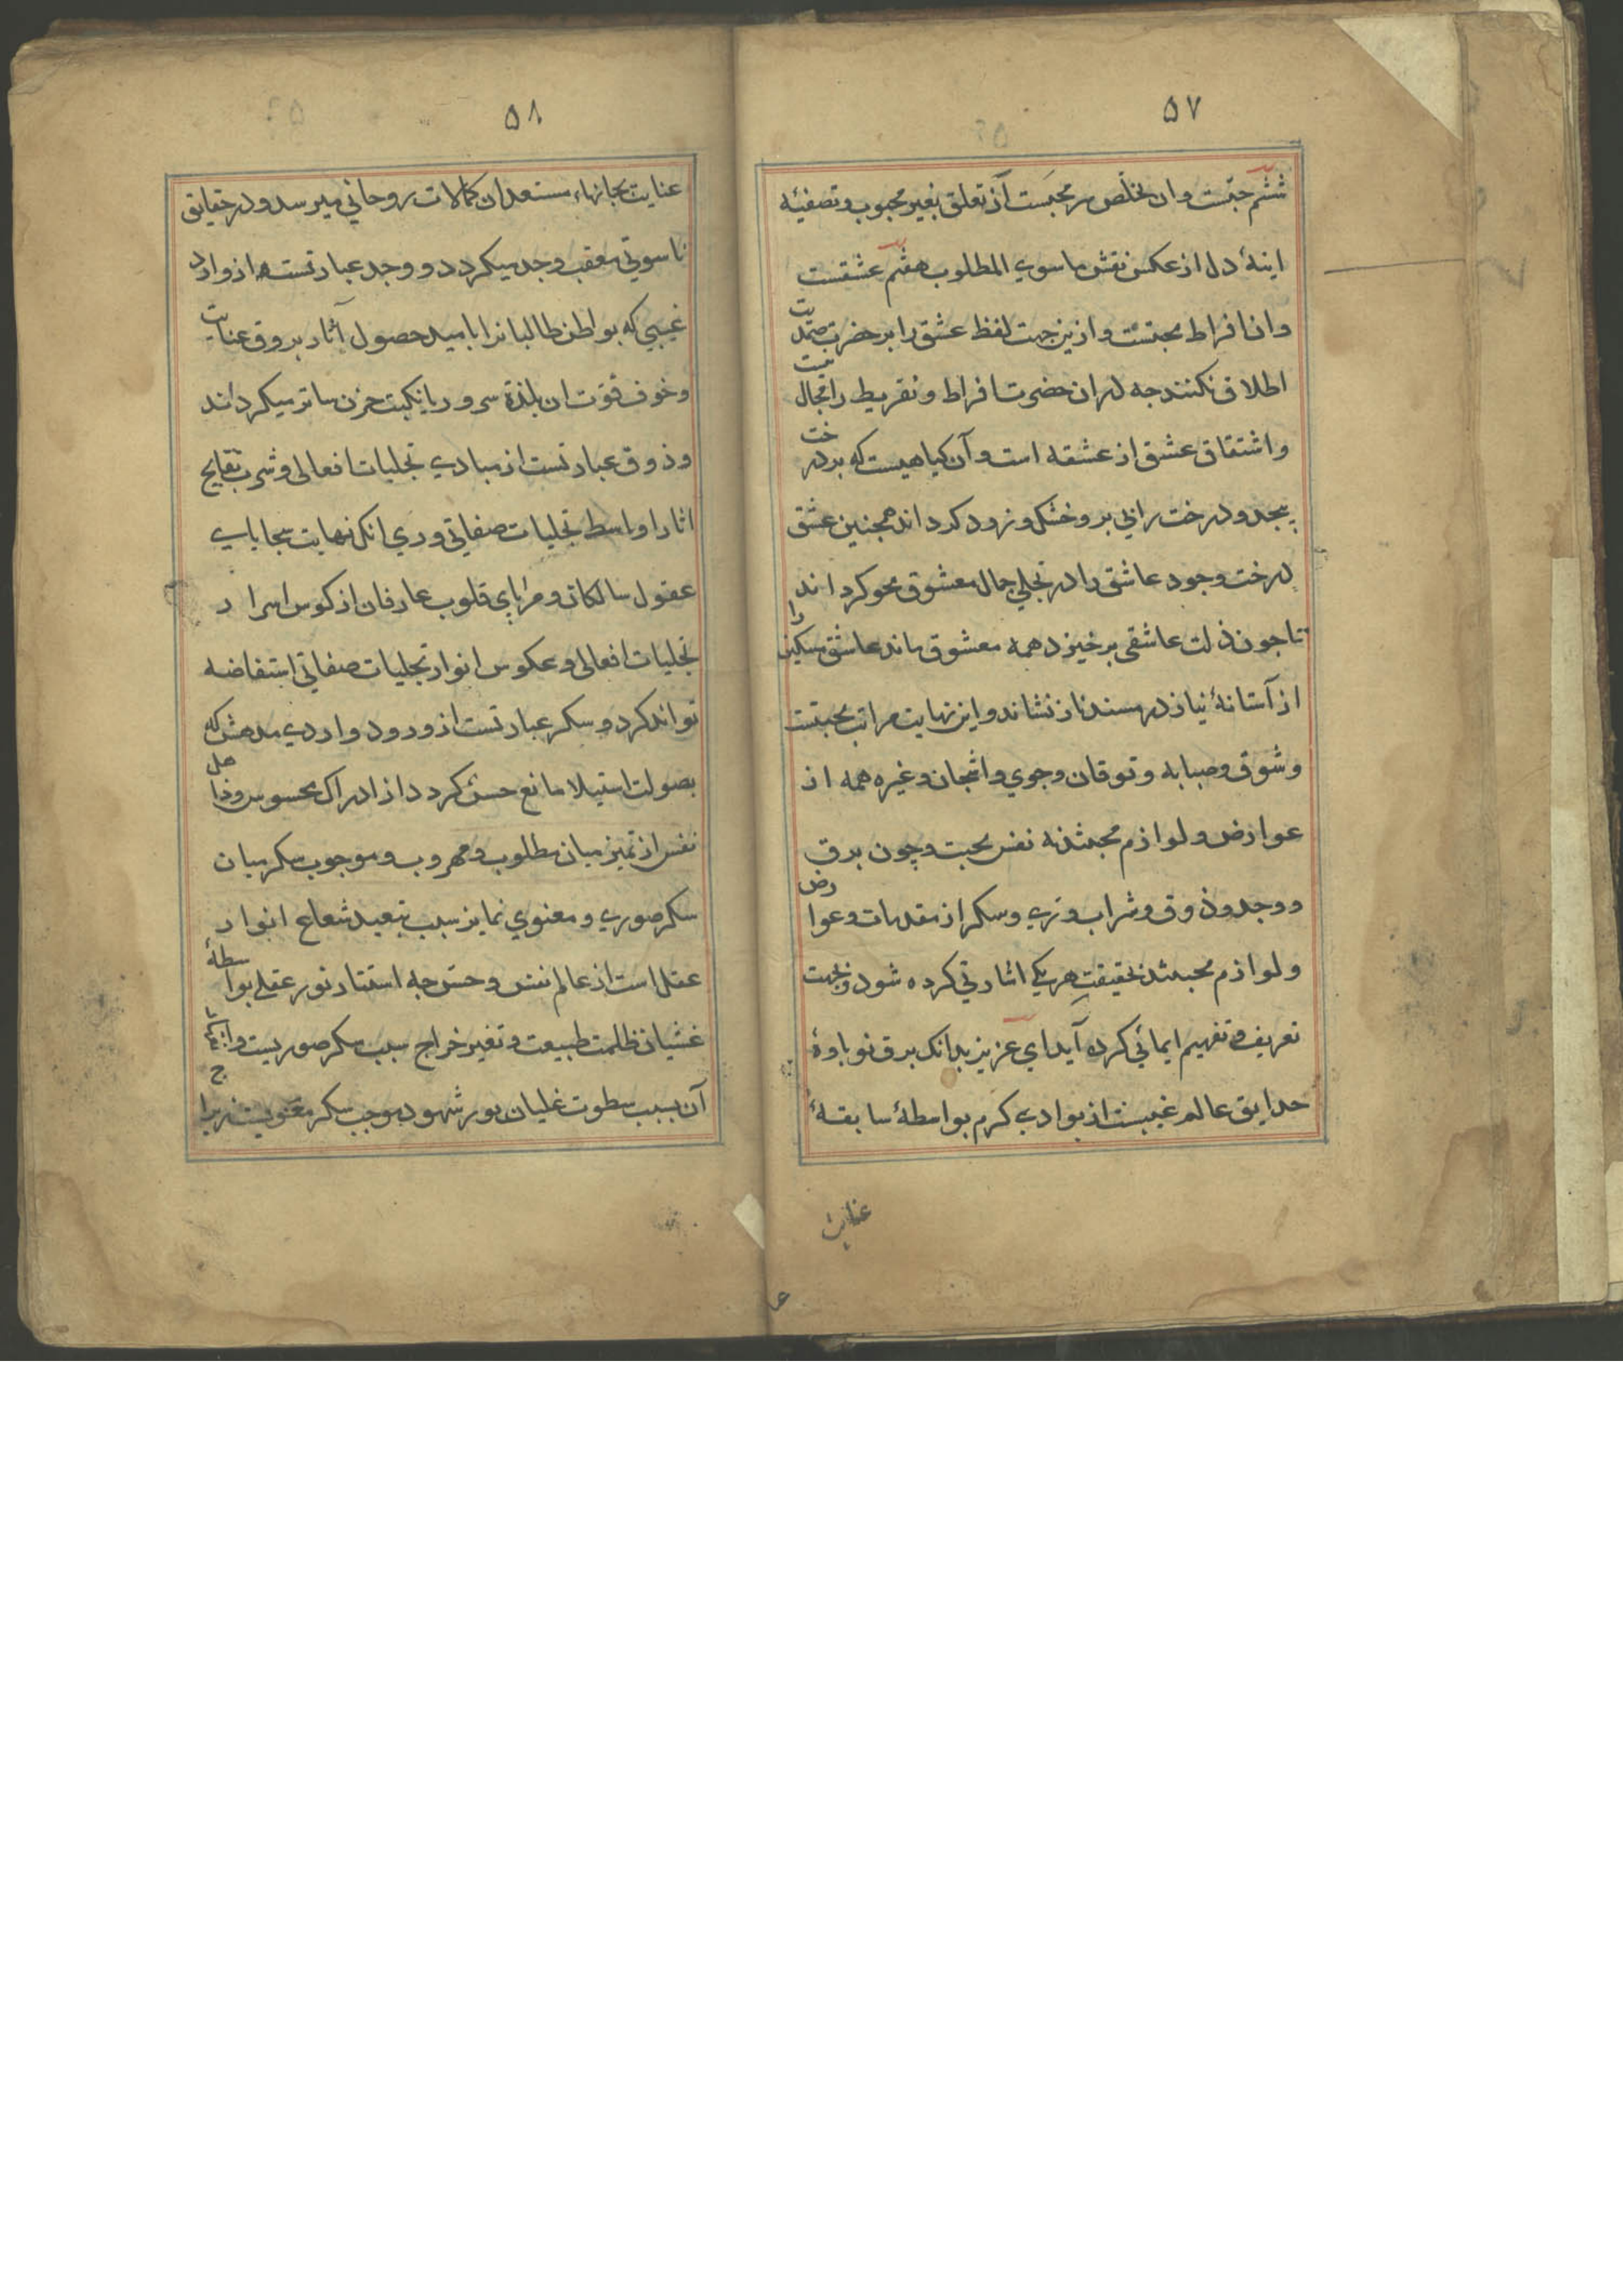 ۵۷
ششم حبّست و ان تخلّص سر محبّست از تعلق بغیر محبوب و تصفیهٔ
اینهٔ دل از عکس نقش ماسوی المطلوب هفتم عشقست
و ان افراط محبتست و ازین جهت لفظ عشق را بر حضرت صمدیت
اطلاق نکنند جه دران حضرت افراط و تفریط را مجال نیست
و اشتقاق عشق از عشقه است و آن کیاهیست که بر درخت
پیجد و درخت را بی بر و خشک و زرد کرداند همجنین عشق
درخت وجود عاشق را در تجلی جمال معشوق محو کرداند
تا جون ذلت عاشقی برخیزد همه معشوق ماند عاشق مسکین را
از آستانهٔ نیاز در مسند ناز نشاند و این نهایت مراتب محبتست
و شوق و صبابه و توقان و جوی و اشجان و غیره همه از
عوارض و لوازم محبتند نه نفس محبت و چون برق
و وجد و ذوق و شراب و ری و سکر از مقدمات و عوارض
و لوازم محبتند بحقیقت هر یکی اشارتی کرده شود و بجهت
تعریف و تفهیم ایمائی کرده آید ای عزیز بدانک برق نوباوهٔ
حدایق عالم غیبست از بوادی کرم بواسطهٔ سابقهٔ
عنایت
۵۸
عنایت بجانهاء مستعدان کمالات روحانی میرسد و در حقایق
ناسوتی معقب وجد میکردد و وجد عبارتست از وارد
غیبی که بواطن طالبانرا بامید حصول آثار بروق عنایت
و خوف فوت ان بلذة سرور یا نکبت حزن ساتر میکرداند
و ذوق عبارتست از مبادی تجلیات افعالی و شرب نتایج
اثار اواسط تجلیات صفاتی و ری انک نهایت سجایای
عقول سالکان و مرایای قلوب عارفان از کوس اسرار
تجلیات افعالی و عکوس انوار تجلیات صفاتی استفاضه
تواند کرد و سکر عبارتست از ورود واردی مدهش که
بصولت استیلا مانع حسّ کردد از ادراک محسوس و ذاهل
نفس از تمیز میان مطلوب و مهروب و موجوب سکر میان
سکر صوری و معنوی تمایز سبب تبعید شعاع انوار
عقل است از عالم نفس و حسّ جه استتار نور عقل بواسطهٔ
غشیان ظلمت طبیعت و تغیر خراج سبب سکر صوریست و انزعاج
آن بسبب سطوت غلیان نور شهود موجب سکر معنویست زیرا